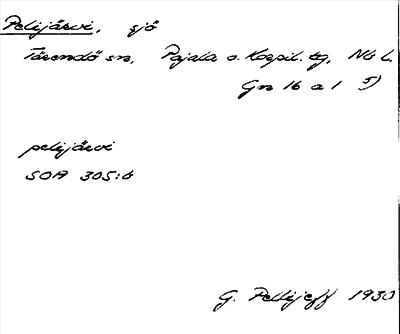 Pelijärvi, sjö
Tärendö sn, Pajala o. Korpil. tg, Nb L.
Gns 16 a 1 5)
pelijärvi
SOA 305:6
G. Pellijeff 1930